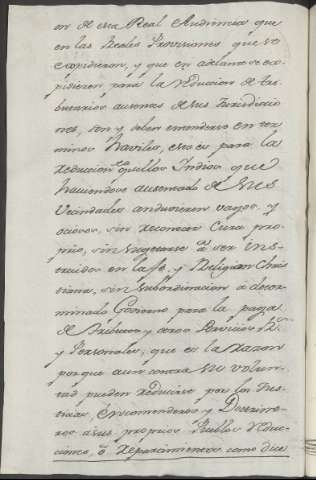 on de esta Real Audiencia que
en las Reales Provisiones que se
expidieron, y que en adelante se ex-
pidieren para la reduccion de tri-
butarios ausentes de sus Jurisdiccio
nes, son y deben entenderse en ter-
minos haviles, esto es para la
reduccion de aquellos Indios que
haviendose ausentado de sus
Vecindades anduvieren vagos y
ociosos, sin reconocer Cura pro-
prio, sin sugetarse à ser ins-
truidos en la fe, y Religion Chris
tiana, sin subordinacion à deter-
minado Govierno para la paga
de tributos y otros Servicios Rs.
y Personales, que es la razon
porque aun contra su volun-
tad pueden reducirse por las Jus-
ticias, Encomenderos y Doctrine-
ros à sus proprios Pueblos, reduc-
ciones, ò repartimientos como due